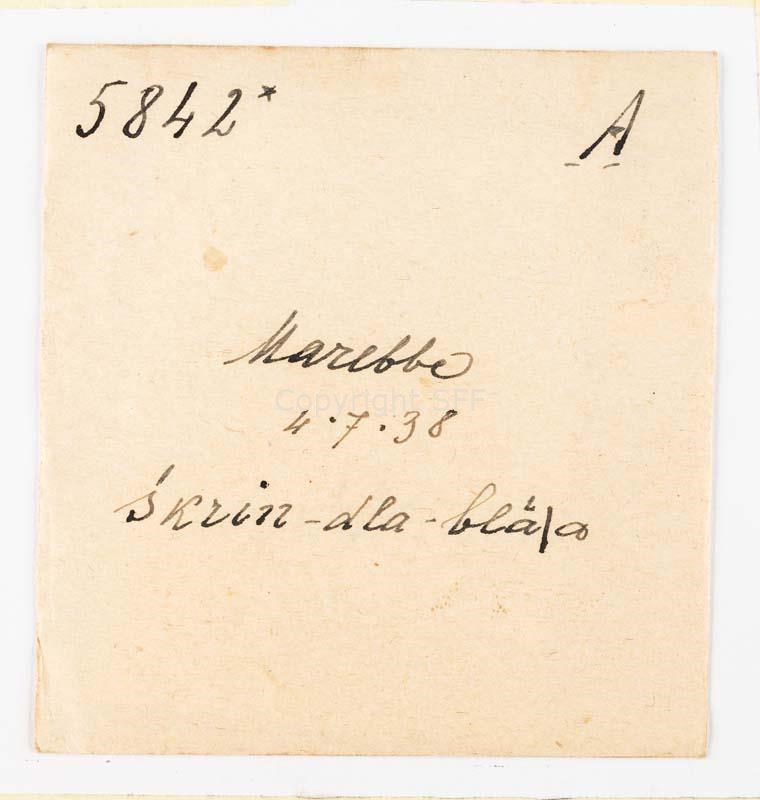 5842* A
Marebbe
Copyright SFF
4.7.38
škrin-dla-